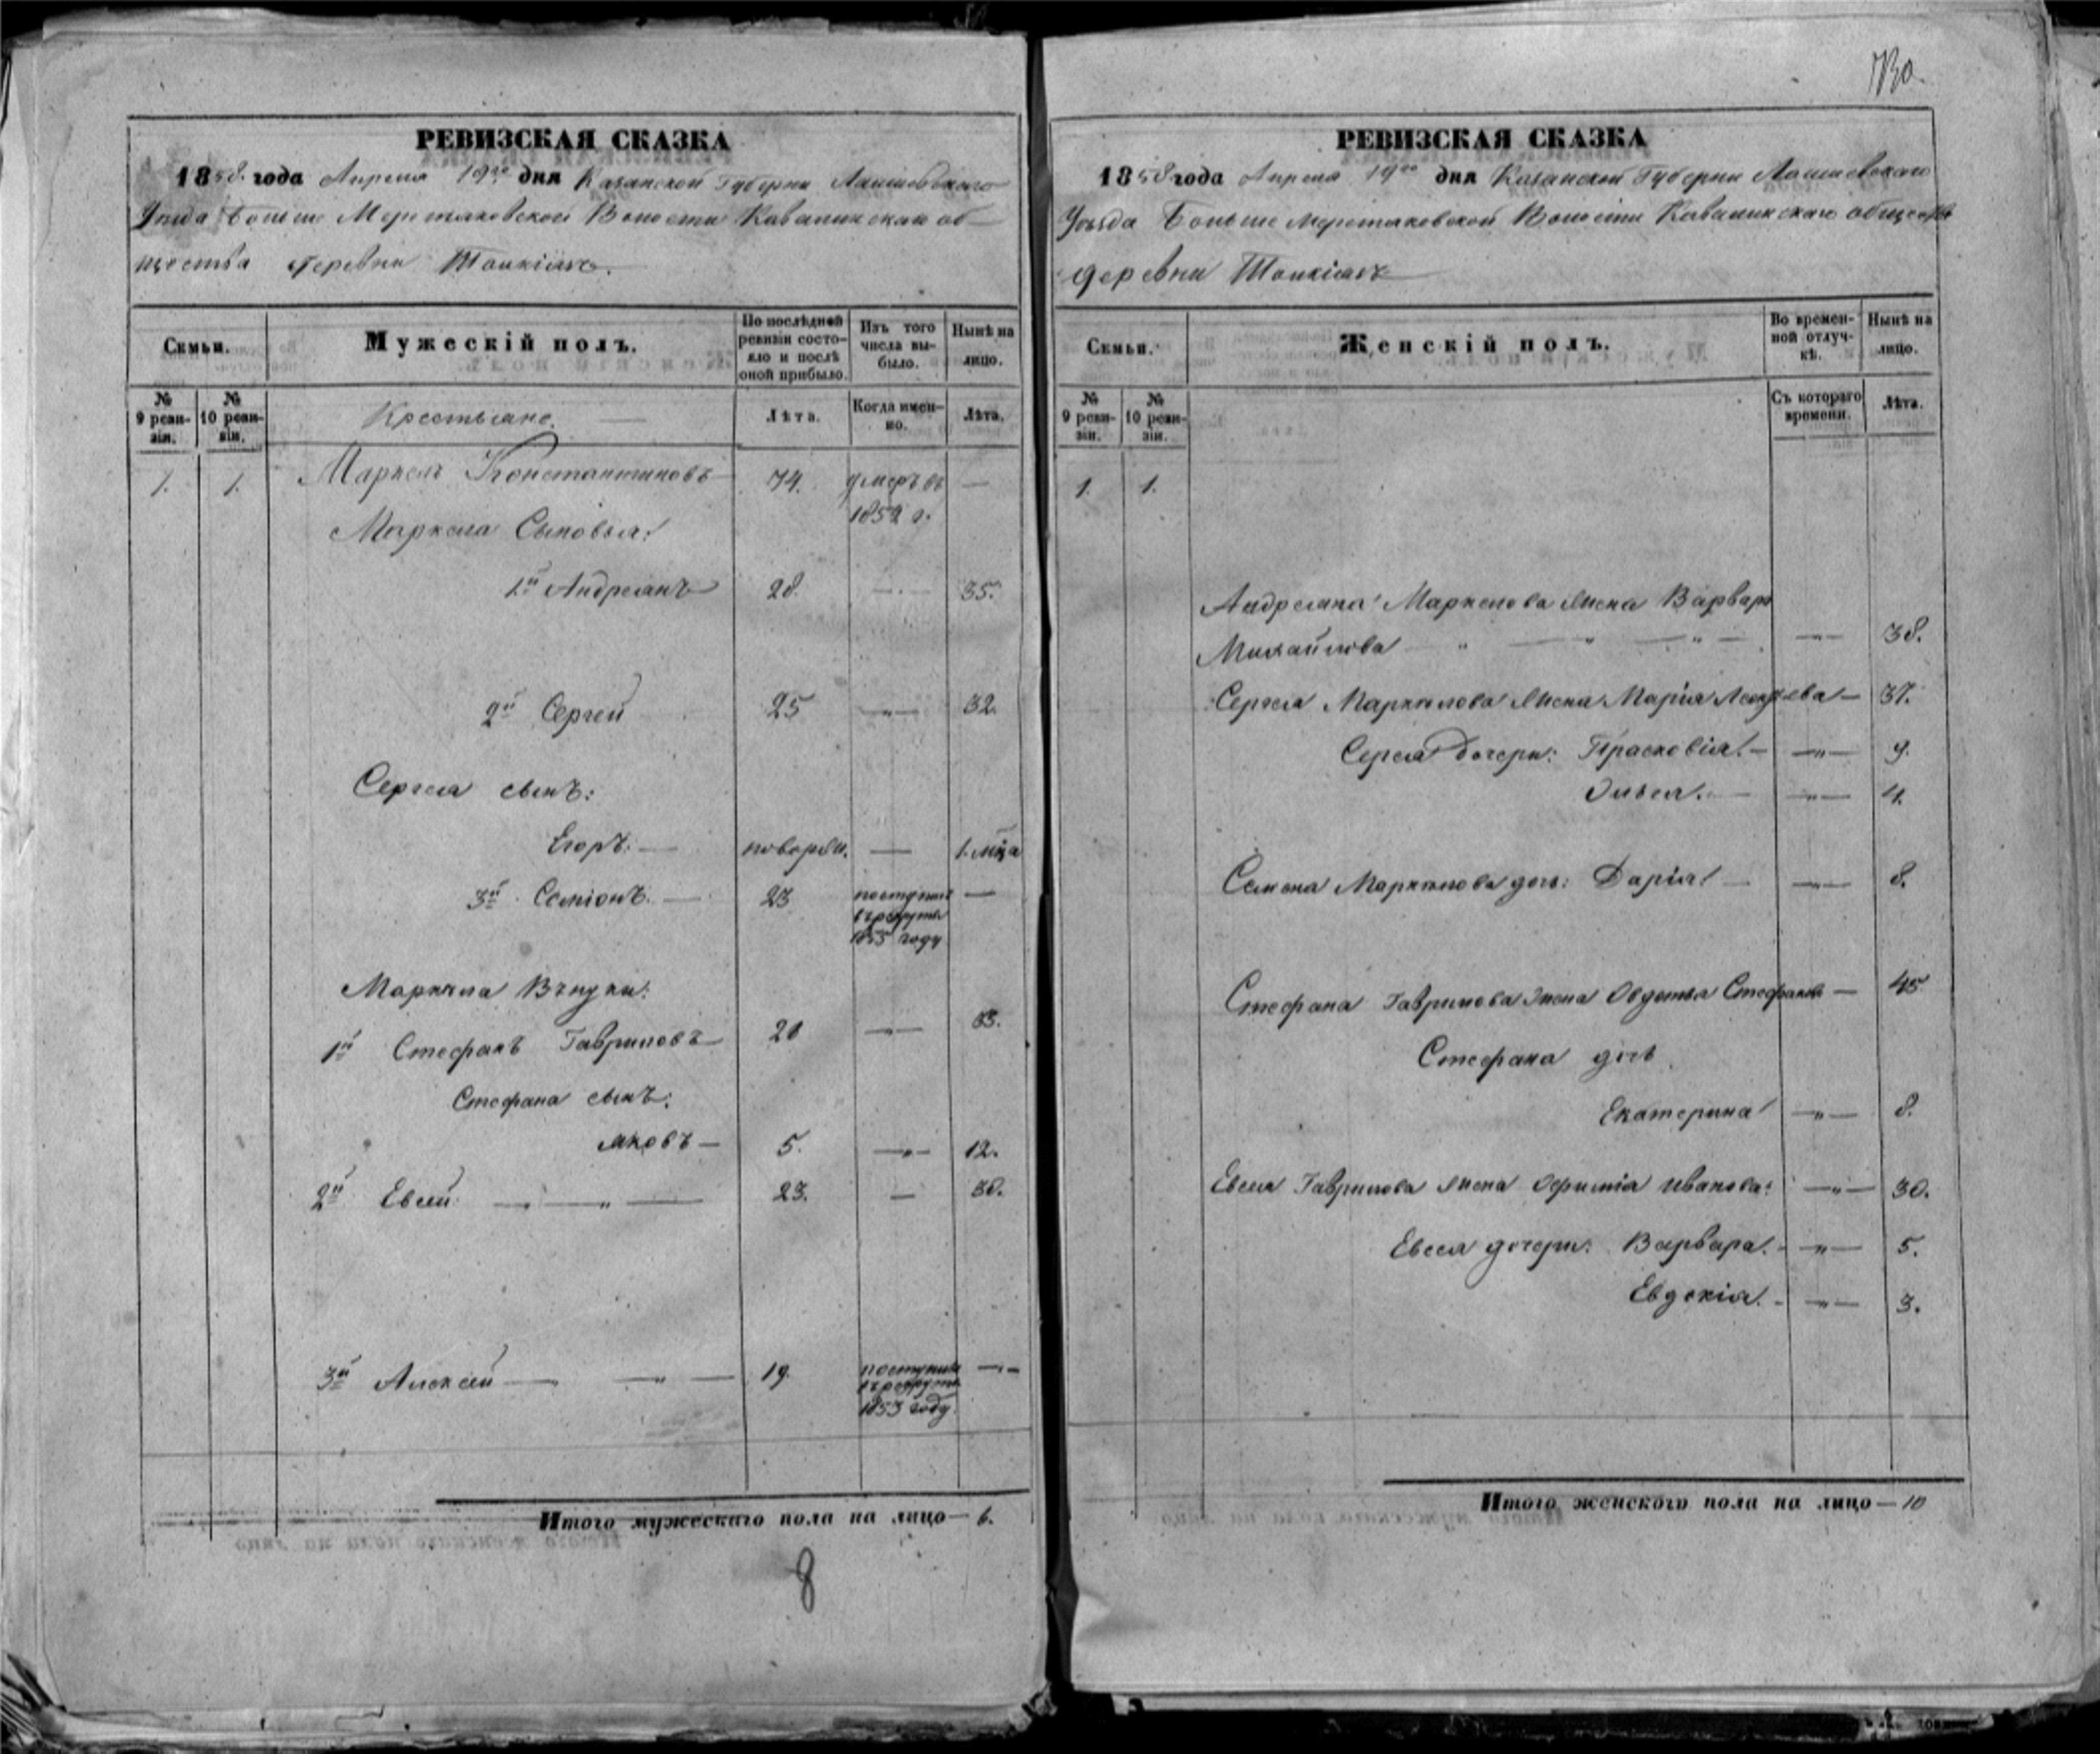 730.
РЕВИЗСКАЯ СКАЗКА
1858 года Апреля 19го дня Казанской Губернии Лаишевскаго
Уезда Больше Меретяковской Волости Кавалинскаго об-
щества деревни
Семьи.
Мужескій полъ.
По послѣдней ревизіи состояло и послѣ оной прибыло.
Изъ того числа выбыло.
Нынѣ на лицо.
№ 9 ревизіи.
№ 10 ревизіи.
Крестьяне.
Лѣта.
Когда именно.
Лѣта.
1. 1. Маркелъ Константиновъ 74. умеръ въ —
1852 г.
Маркела Сыновья:
1й Андреянъ 28. — 35.
2й Сергей 25 —„— 32.
Сергея сынъ:
Егоръ: — новорож. — 1. м̃ца
3й Семіонъ. — 23 поступилъ —
в рекруты
1855 году
Маркела Внуки:
1й Стефанъ Гавриловъ 28 —„—
Стефана сынъ:
Яковъ — 5. —„— 12.
2й Евсей — „ — 23. — 30.
3й Алексей — „ — 19. поступилъ —
в рекруты
1853 году.
Итого мужескаго пола на лицо — 6.
8
РЕВИЗСКАЯ СКАЗКА
1858 года Апреля 19го дня Казанской Губернии Лаишевскаго
Уѣзда Больше Меретяковской Волости Кавалинскаго общества
деревни
Семьи.
Женскій полъ.
Во временной отлучкѣ.
Нынѣ на лицо.
№ 9 ревизіи.
№ 10 ревизіи.
Съ котораго времени.
Лѣта.
1. 1.
Андреяна Маркелова жена Варвара
Михайлова — „ — „ — „ — — 38.
Сергея Маркелова жена Марія — 37.
Сергея дочери: Прасковія. — —„— 9.
—„— 4.
Семена Маркелова дочь: Дарія. — —„— 8.
Стефана Гаврилова жена Овдотья Стефанова — 45
Стефана дочь
Екатерина —„— 8.
Евсея Гаврилова жена Офимія Иванова: —„— 30.
Евсея дочери: Варвара. —„— 5.
Евдокія. —„— 3.
Итого женскаго пола на лицо — 10